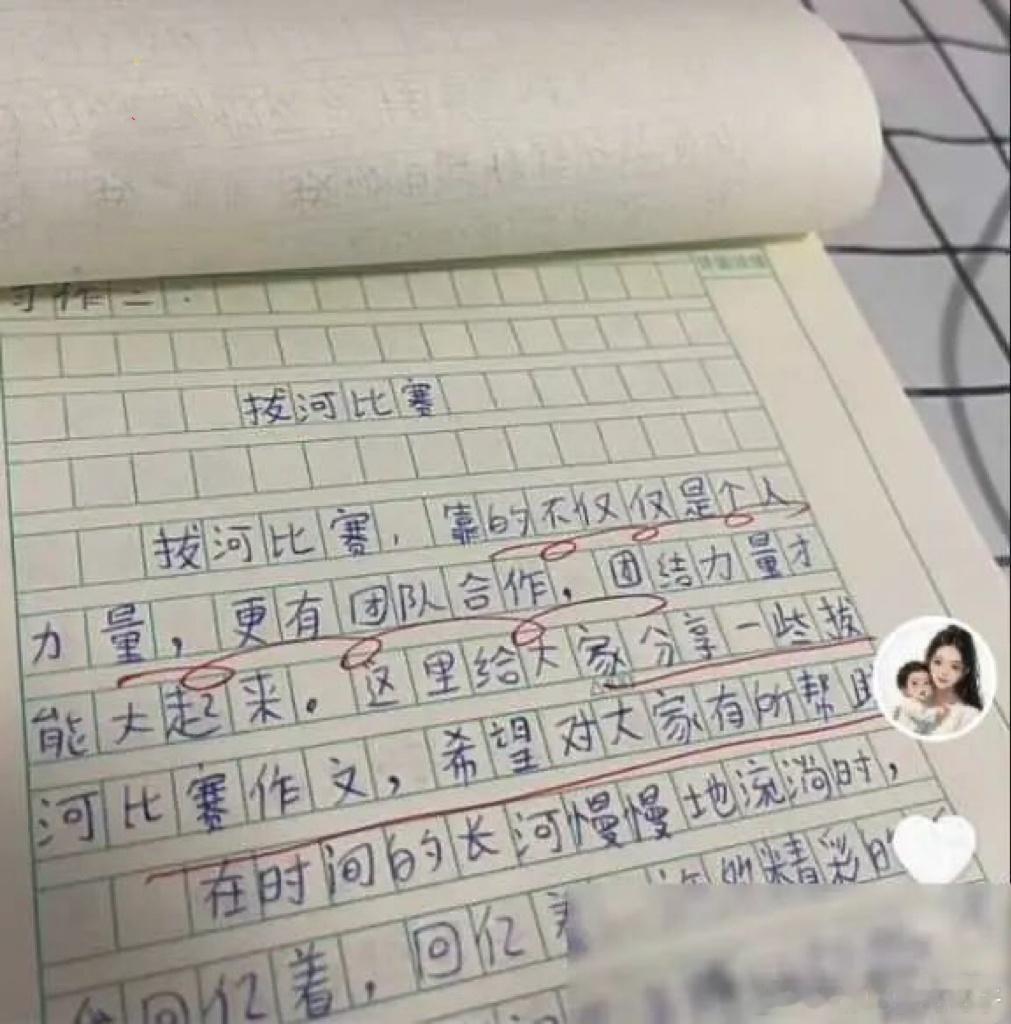 习作二:
拔河比赛
拔河比赛,靠的不仅仅是个人
力量,更有团队合作,团结力量才
能大起来。这里给大家分享一些拔
河比赛作文,希望对大家有所帮助
在时间的长河慢慢地流淌时,
回忆着,回忆
精彩的